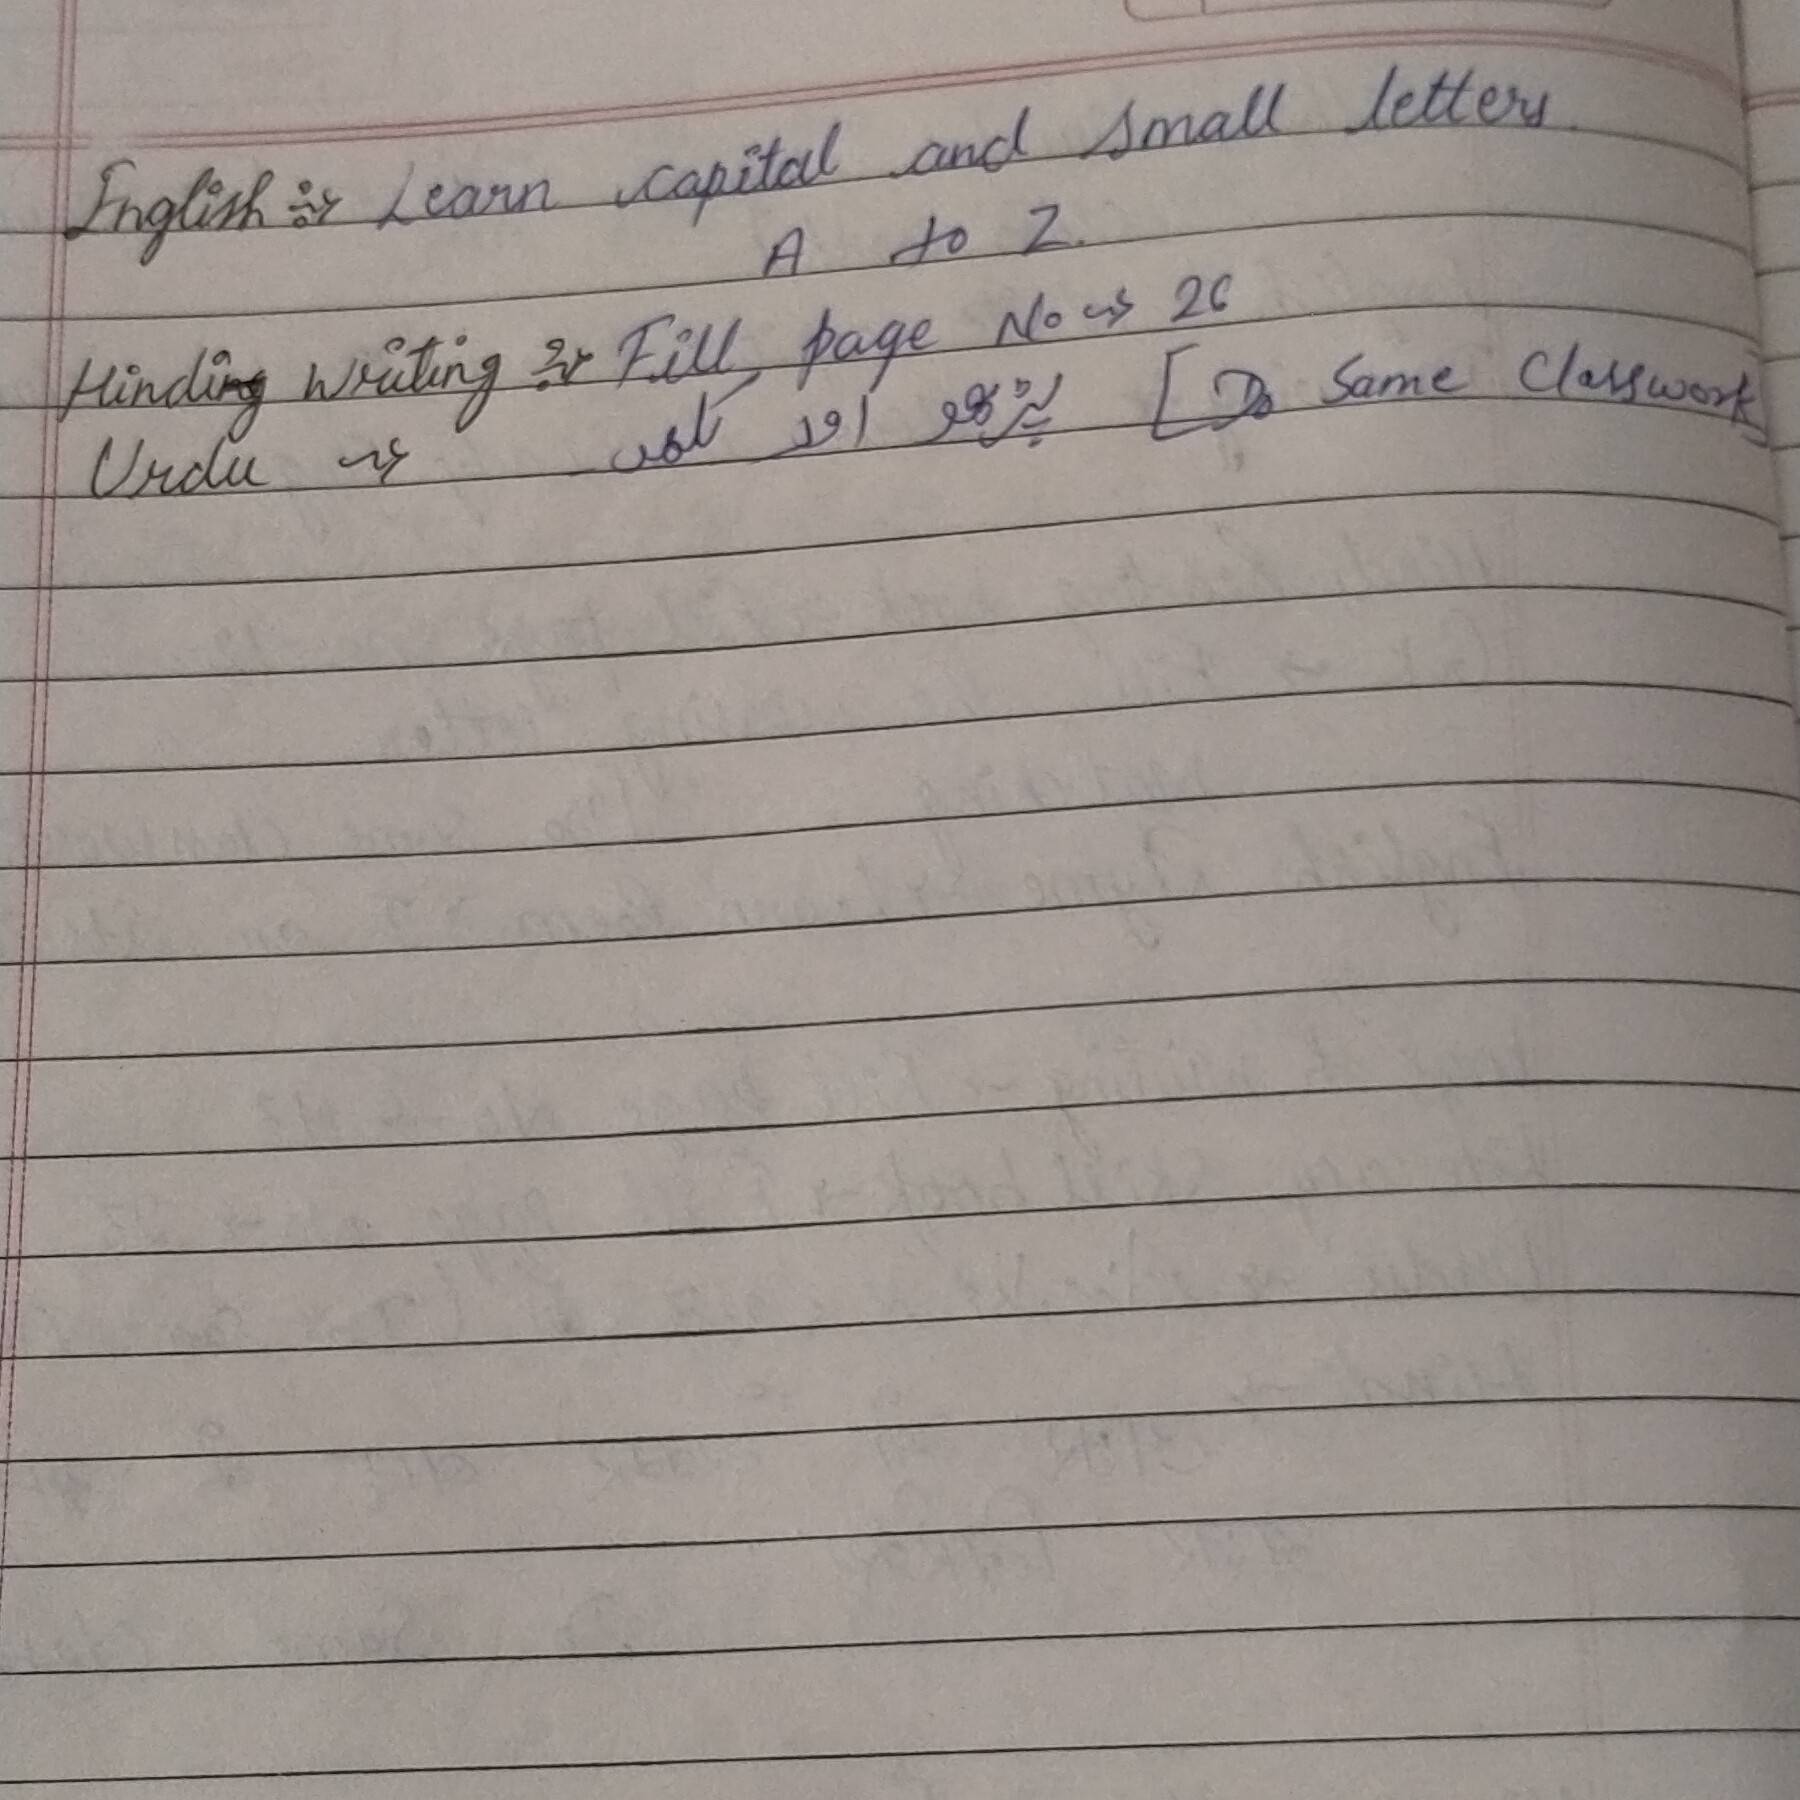 English :→ Learn capital and small letters
A to Z.
Hindi writing :→ Fill page No → 26
Urdu → پڑھو اور لکھو [Do Same Classwork]